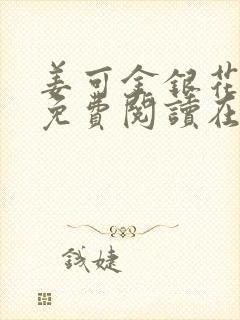 姜可金銀花
免費閱讀在
錢婕